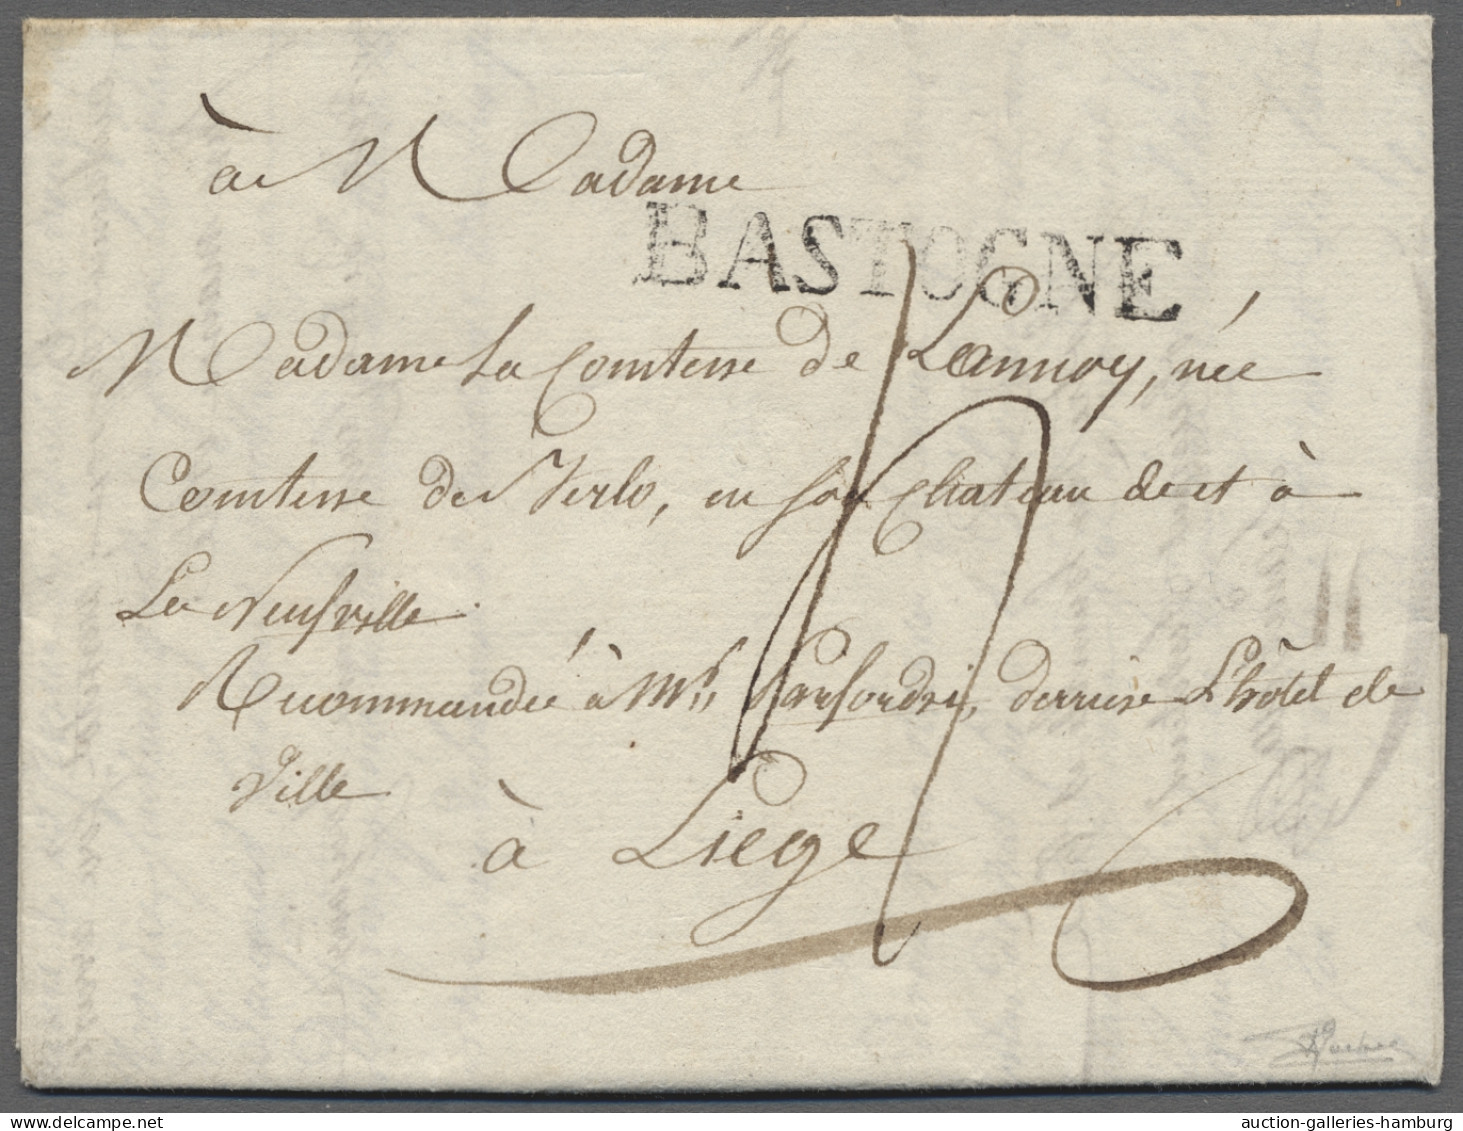 à Madame
BASTOGNE
Madame La Comtesse de Lannoy, née
Comtesse de Verlo, en son Chateau de et à
La Neufville
Recommandée à Mr derriere L'hôtel de
Ville
à Liège
auction-galleries-hamburg